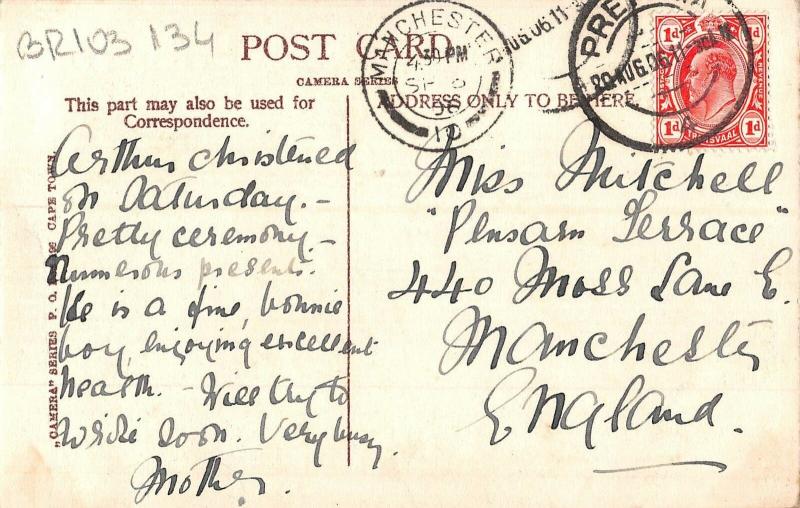 BR103 134
POST CARD
CAMERA SERIES
This part may also be used for
Correspondence.
ADDRESS ONLY TO BE HERE.
MANCHESTER
4 30 PM
06
10
PRE
20 AUG.06.11
1d 1d
POSTAGE REVENUE
1d 1d
TRANSVAAL
"CAMERA" SERIES P. O. CAPE TOWN.
Arthur christened
on Saturday. –
Pretty ceremony. –
Numerous presents.
He is a fine, bonnie
boy, enjoying excellent
health. – Will try to
write soon. Very busy.
Mother.
Miss Mitchell
"Pensarn Terrace"
440 Moss Lane E.
Manchester
England.